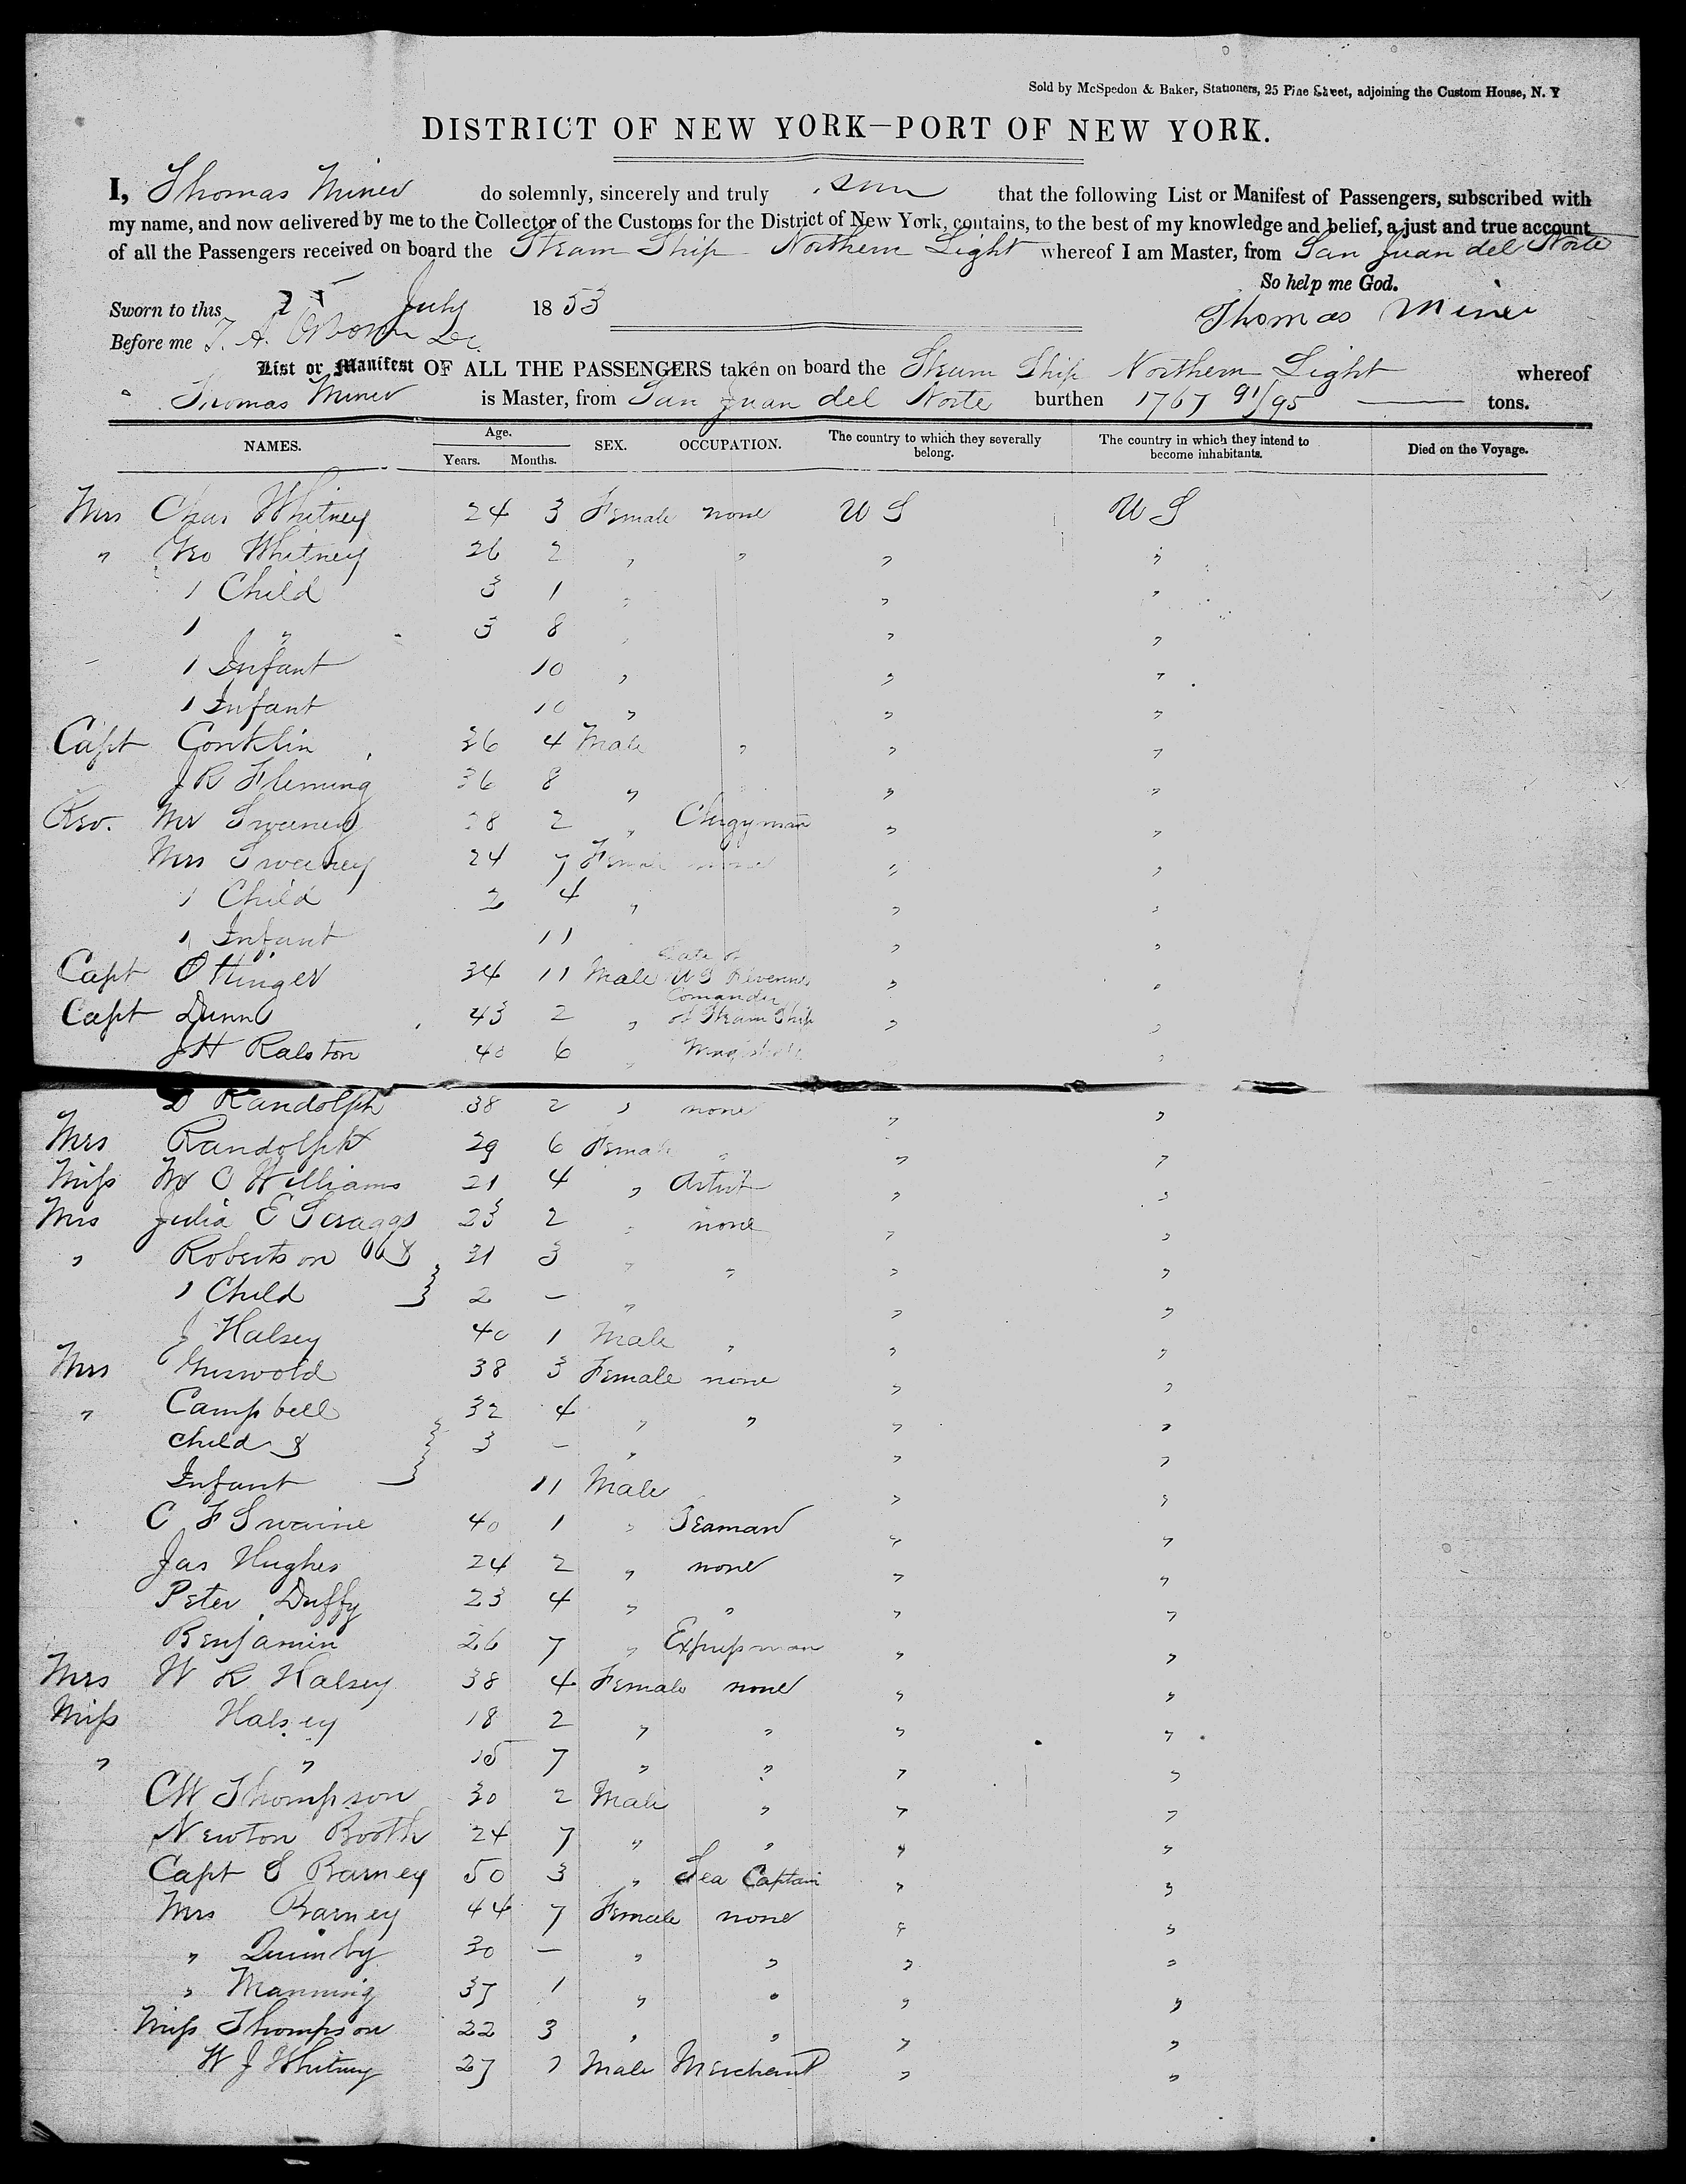 Sold by McSpedon & Baker, Stationers, 25 Pine Street, adjoining the Custom House, N. Y
DISTRICT OF NEW YORK—PORT OF NEW YORK.
I, Thomas Miner do solemnly, sincerely and truly that the following List or Manifest of Passengers, subscribed with
my name, and now delivered by me to the Collector of the Customs for the District of New York, contains, to the best of my knowledge and belief, a just and true account
of all the Passengers received on board the Steam Ship Northern Light whereof I am Master, from San Juan del Norte
So help me God.
Sworn to this 25 July 1853 Thomas Miner
Before me
List or Manifest OF ALL THE PASSENGERS taken on board the Steam Ship Northern Light whereof
Thomas Miner is Master, from San Juan del Norte burthen 1767 91/95 tons.
NAMES. Age. Years. Months. SEX. OCCUPATION. The country to which they severally belong. The country in which they intend to become inhabitants. Died on the Voyage.
Mrs Chas Whitney 24 3 Female none U S U S
" Geo Whitney 26 2 " " " "
1 Child 3 1 " " "
1 " 3 8 " " "
1 Infant 10 " " "
1 Infant 10 " " "
Capt Conklin 36 4 Male " " "
J R Fleming 36 8 " " "
Rev. Mr Sweeney 28 2 " Clergyman " "
Mrs Sweeney 24 7 Female none " "
1 Child 2 4 " " "
1 Infant 11 " "
Capt Ottinger 34 11 Male Late of U S Revenue " "
Capt Dunn 43 2 " Comander of Steam Ship " "
J H Ralston 40 6 " Magistrate " "
D Randolph 38 2 " none " "
Mrs Randolph 29 6 Female " " "
Miss M C Williams 21 4 " Artist " "
Mrs Julia E Scraggs 23 2 " none " "
" Robertson & 21 3 " " " "
1 Child 2 — " " "
J Halsey 40 1 Male " " "
Mrs Griswold 38 3 Female none " "
" Campbell 32 4 " " " "
child & 3 — " " "
Infant 11 Male " "
C F Swaine 40 1 " Seaman " "
Jas Hughes 24 2 " none " "
Peter Duffy 23 4 " " " "
Benjamin 26 7 " Expressman " "
Mrs W R Halsey 38 4 Female none " "
Miss Halsey 18 2 " " " "
" " 15 7 " " " "
C W Thompson 30 2 Male " " "
Newton Booth 24 7 " " " "
Capt S Barney 50 3 " Sea Captain " "
Mrs Barney 44 7 Female none " "
" Quimby 30 — " " " "
" Manning 37 1 " " " "
Miss Thompson 22 3 " " " "
W J Whitney 27 7 Male Merchant " "